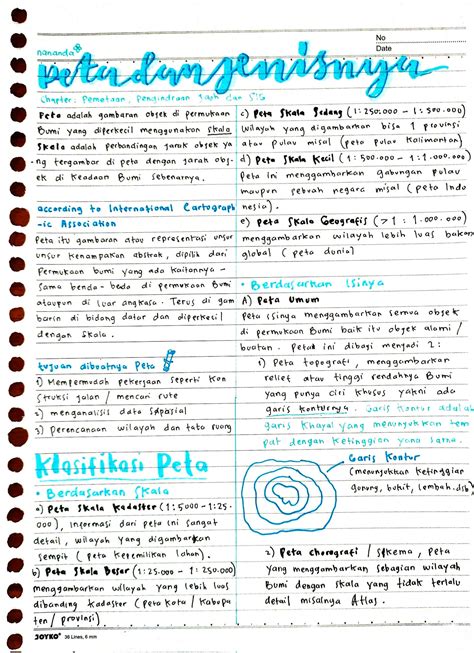 No
Date
nananda
peta dan jenisnya
Chapter: Pemetaan, Pengindraan Jauh dan SIG
Peta adalah gambaran objek di permukaan
Bumi yang diperkecil menggunakan skala
Skala adalah perbandingan jarak objek ya
ng tergambar di peta dengan jarak obj-
ek di keadaan Bumi sebenarnya.
according to International Cartograph
-ic Association
Peta itu gambaran atau representasi unsur
unsur kenampakan abstrak, dipilih dari
Permukaan bumi yang ada kaitannya
sama benda-beda di permukaan Bumi
ataupun di luar angkasa. Terus di gam
barin di bidang datar dan diperkecil
dengan skala.
tujuan dibuatnya Peta
1) Mempermudah pekerjaan seperti kon
struksi jalan / mencari rute
2) menganalisis data spasial
3) Perencanaan wilayah dan tata ruang
Klasifikasi Peta
• Berdasarkan Skala
a) Peta Skala Kadaster (1:5000 - 1:25.
000), Informasi dari peta ini sangat
detail, wilayah yang digambarkan
sempit (Peta kepemilikan lahan).
b) Peta Skala Besar (1:25.000 - 1:250.000)
menggambarkan wilayah yang lebih luas
dibanding kadaster (peta kota / kabupa
ten / provinsi)
c) Peta Skala Sedang (1:250.000 - 1:500.000)
Wilayah yang digambarkan bisa 1 provinsi
atau pulau misal (peta pulau Kalimantan)
d) Peta Skala Kecil (1:500.000 - 1:1.000.000)
Peta ini menggambarkan gabungan pulau
maupun sebuah negara misal (peta Indo
nesia).
e) Peta Skala Geografis (>1 : 1.000.000)
menggambarkan wilayah lebih luas bahkan
global (peta dunia)
• Berdasarkan Isinya
A) Peta Umum
Peta isinya menggambarkan semua objek
di permukaan Bumi baik itu objek alami /
buatan. Petak ini dibagi menjadi 2:
1) Peta topografi, menggambarkan
relief atau tinggi rendahnya Bumi
yang punya ciri khusus yakni ada
garis konturnya. Garis kontur adalah
garis khayal yang menunjukkan tem
pat dengan ketinggian yang sama.
Garis Kontur
(menunjukkan ketinggian
gunung, bukit, lembah. dsb)
2) Peta chorografi / skema, Peta
yang menggambarkan sebagian wilayah
Bumi dengan skala yang tidak terlalu
detail misalnya Atlas.
JOYKO 36 Lines, 6 mm